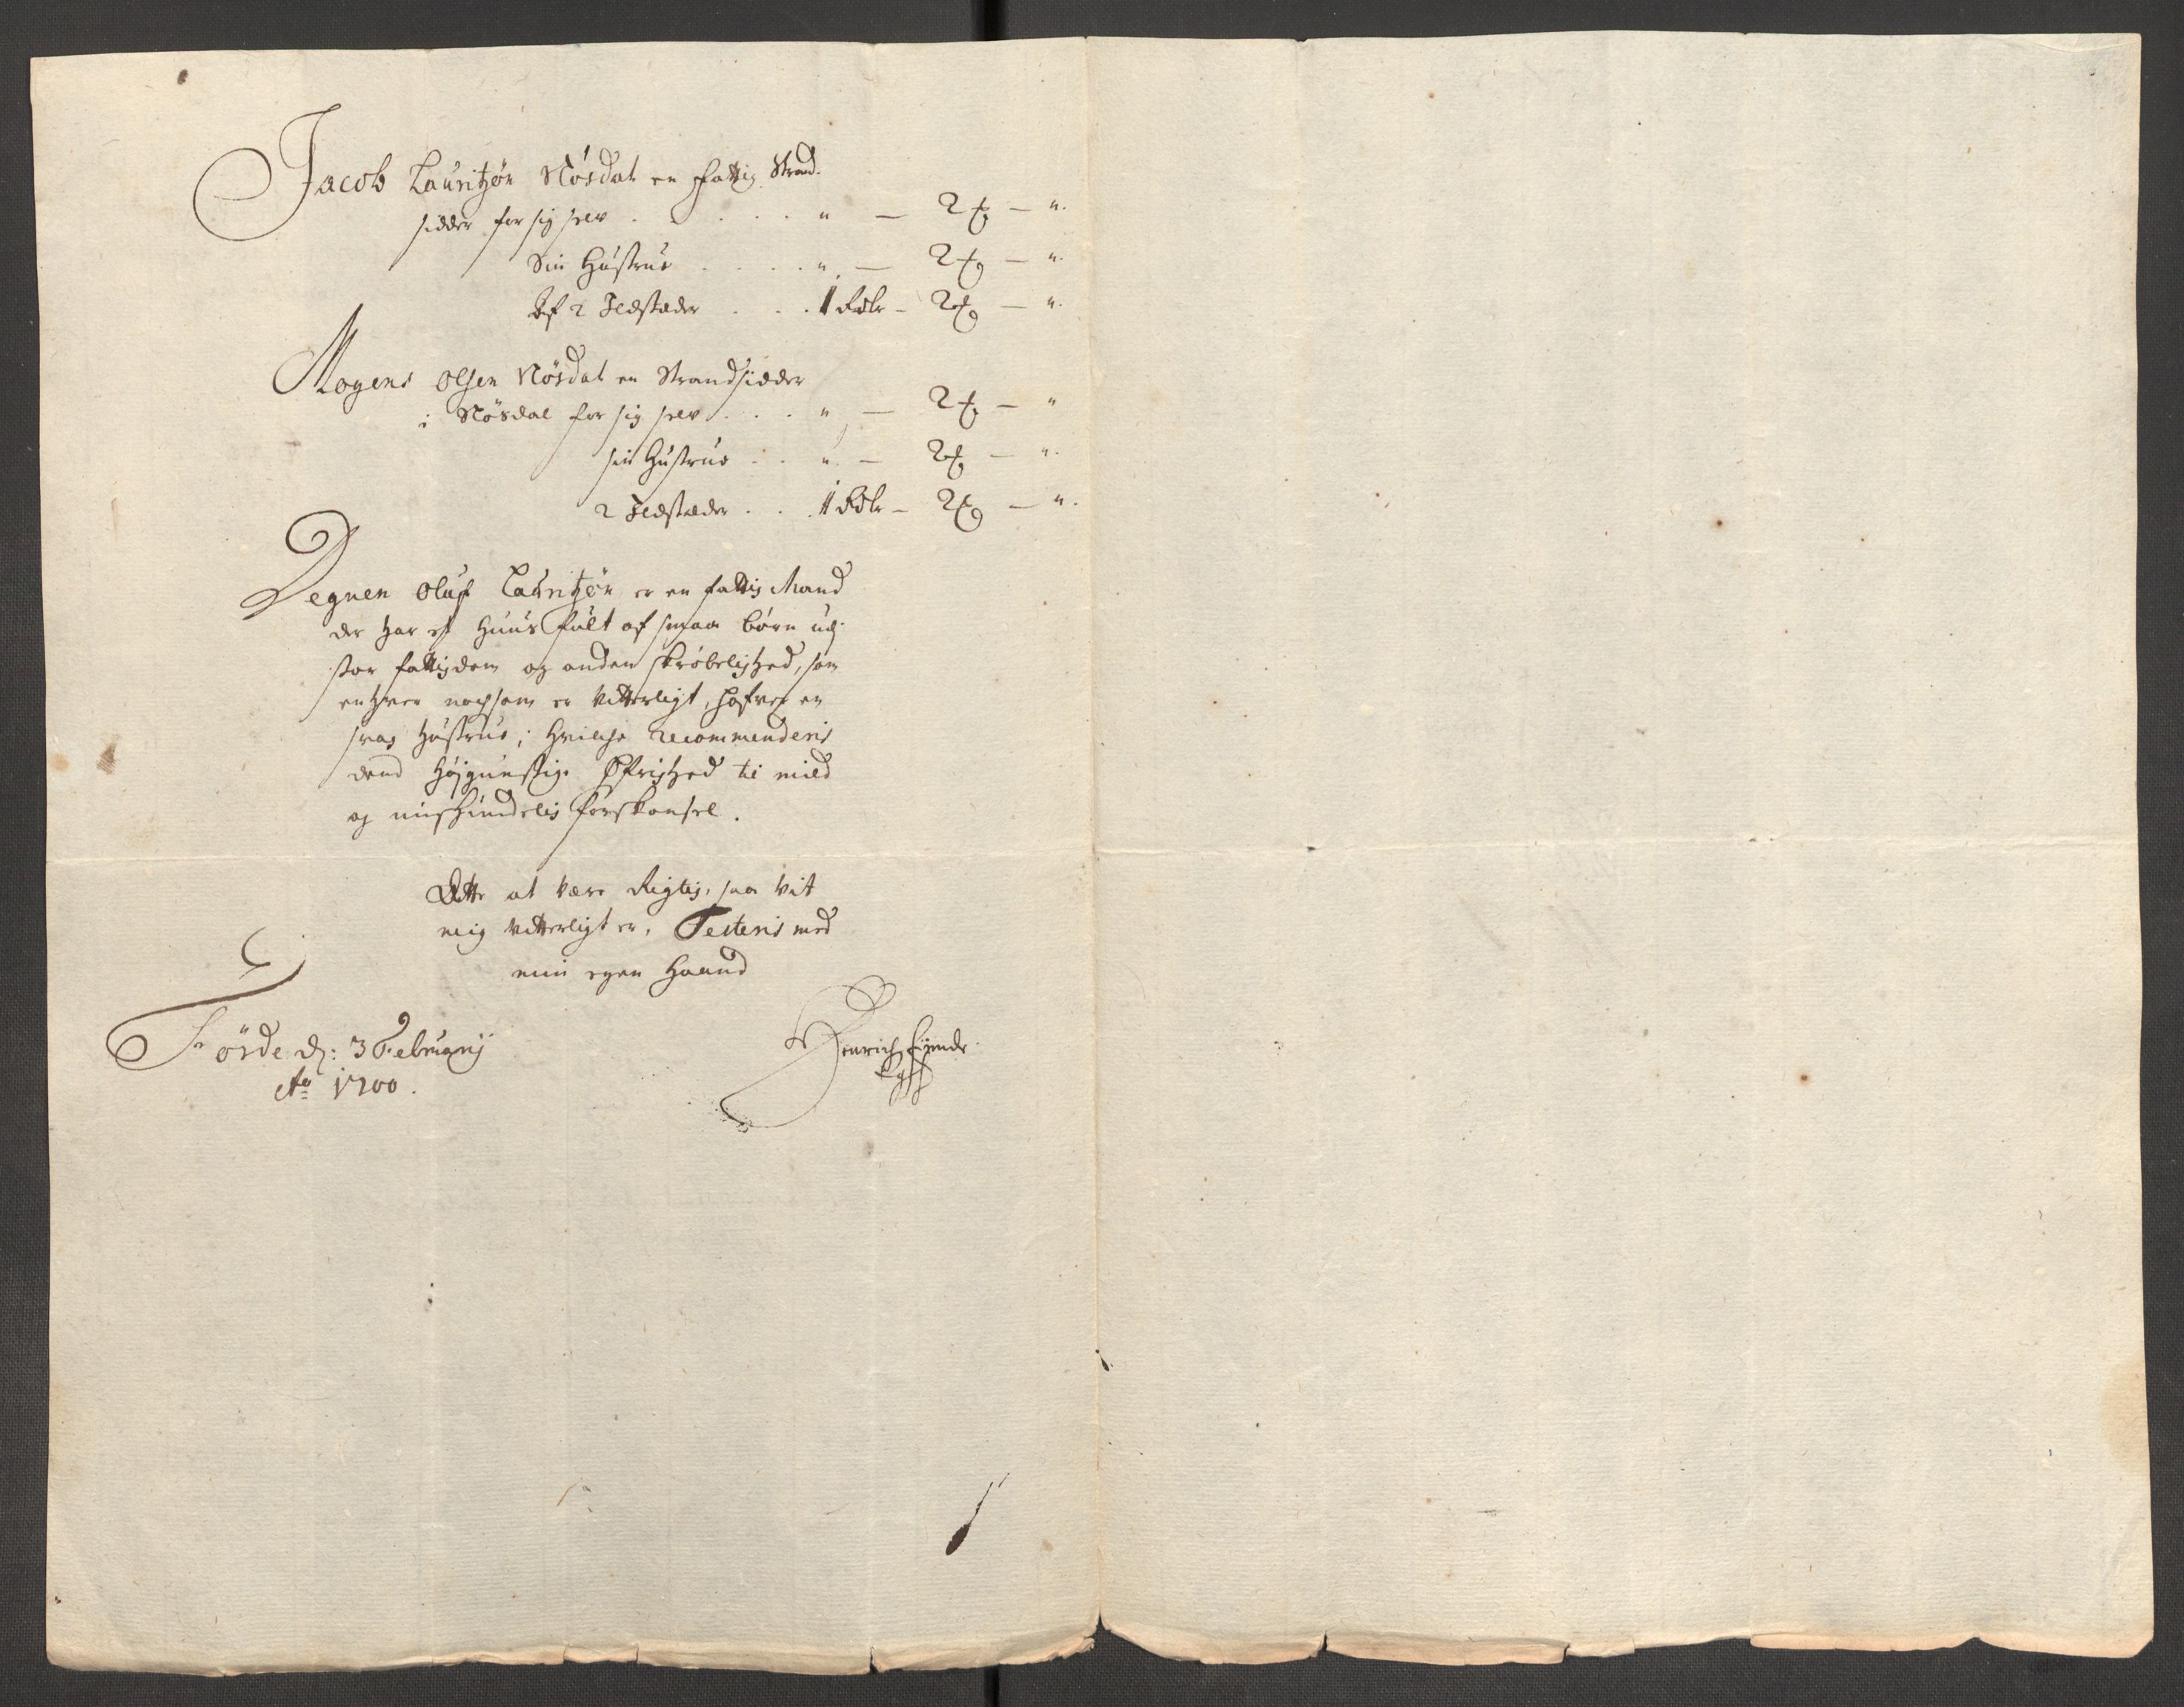 Jacob Lauritzøn Nøsdal en fattig Strand-
sidder for sig selv . . . . . " — 2 ℳ — ".
Sin Hustrue . . . . " — 2 ℳ — ".
Af 2 Ildstæder . . . 1 Rdlr — 2 ℳ — ".
Mogens Olsen Nøsdal en Strandsidder
i Nøsdal for sig selv . . . " — 2 ℳ — "
sin Hustrue . . ". — 2 ℳ — ".
2 Ildstæder . . . 1 Rdlr — 2 ℳ — ".
Degnen Oluf Lauritzøn er en fattig Mand
der har et Huus fult af smaa børn udj
stor fattigdom og anden skrøbelighed, som
enhver nochsom er vitterligt, hafver en
svag Hustrue; hvilche recommenderis
dend Højgunstige Øfrighed til mild
og forskonsel.
Dette at være Rigtig, saa vit
mig vitterligt er, Testeris med
min egen Haand
Førde d: 3 Februarij
Ao 1700.
Henrich